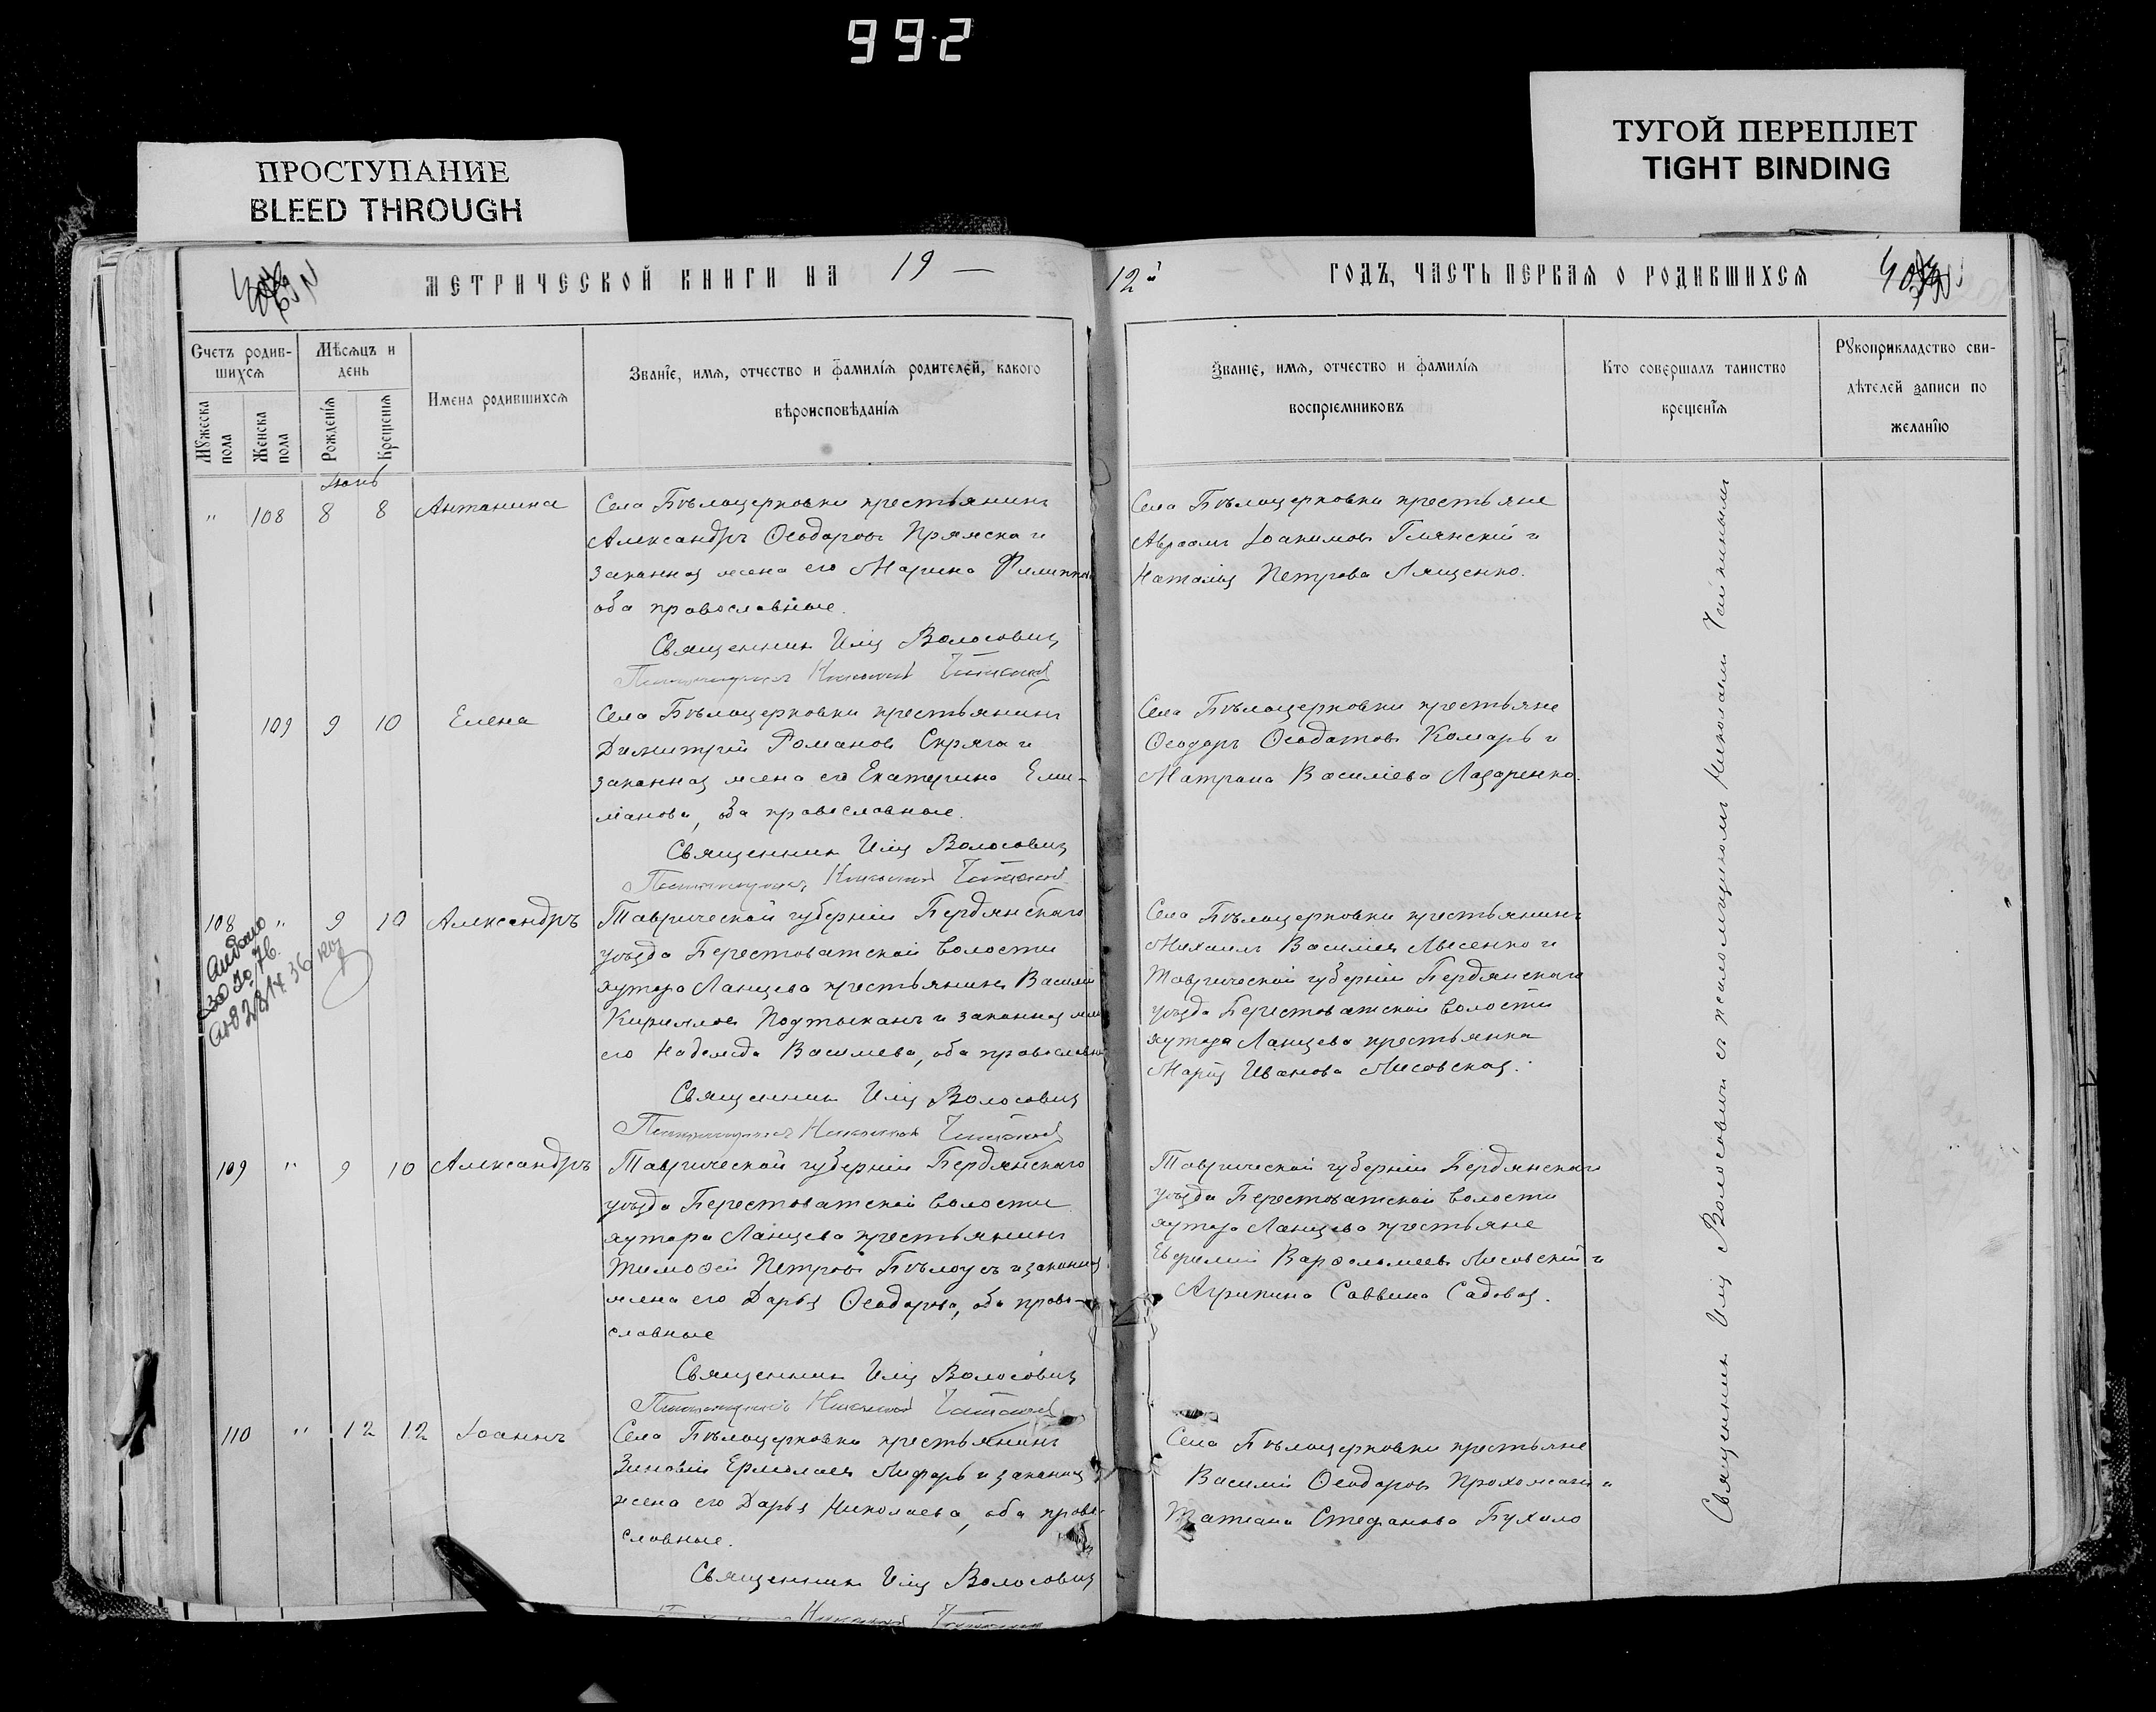 992
ПРОСТУПАНИЕ
BLEED THROUGH
ТУГОЙ ПЕРЕПЛЕТ
TIGHT BINDING
МЕТРИЧЕСКОЙ КНИГИ НА 19 —
12й ГОДЪ, ЧАСТЬ ПЕРВАЯ О РОДИВШИХСЯ
Счетъ родив-
шихся
Мужеска пола
Женска пола
Мѣсяцъ и
день
Рожденія
Крещенія
Имена родившихся
Званіе, имя, отчество и фамилія родителей, какого
вѣроисповѣданія
Званіе, имя, отчество и фамилія
воспріемниковъ
Кто совершалъ таинство
крещенія
Рукоприкладство сви-
дѣтелей записи по
желанію
Іюнь
" 108 8 8 Антонина
Села Бѣлоцерковки крестьянинъ
Александръ Ѳеодоровъ Прямска и
законная жена его Марина
оба православные.
Священникъ Илія Волосовичъ
Псаломщикъ Николай
Села Бѣлоцерковки крестьяне
Авраамъ Іоакимовъ и
Наталія Петрова Лященко.
109 9 10 Елена
Села Бѣлоцерковки крестьянинъ
Димитрій Романовъ Скряга и
законная жена его Екатерина Ели-
манова, оба православные.
Священникъ Илія Волосовичъ
Псаломщикъ Николай
Села Бѣлоцерковки крестьяне
Ѳеодоръ Ѳеодотовъ Комарь и
Матрона Василіева Лазаренко.
108 " 9 10 Александръ
Таврической губерніи Бердянскаго
уѣзда Берестоватской волости
хутора Ланцева крестьянинъ Василій
Кирилловъ Подтыканъ и законная жена
его Надежда Василіева, оба православные
Священникъ Илія Волосовичъ
Псаломщикъ Николай
Села Бѣлоцерковки крестьянинъ
Михаилъ Василіевъ Лысенко и
Таврической губерніи Бердянскаго
уѣзда Берестоватской волости
хутора Ланцева крестьянка
Марія Иванова Лисовская.
109 " 9 10 Александръ
Таврической губерніи Бердянскаго
уѣзда Берестоватской волости
хутора Ланцева крестьянинъ
Тимоѳей Петровъ Бѣлоусъ и законная
жена его Дарья Ѳеодорова, оба право-
славные
Священникъ Илія Волосовичъ
Псаломщикъ Николай
Таврической губерніи Бердянскаго
уѣзда Берестоватской волости
хутора Ланцева крестьяне
Евфимій Варѳоломеевъ Лисовскій и
Агрипина Саввина Садовая.
110 " 12 12 Іоаннъ
Села Бѣлоцерковки крестьянинъ
Зиновій Ермолаевъ Лифарь и законная
жена его Дарья Николаева, оба право-
славные.
Священникъ Илія Волосовичъ
Николай
Села Бѣлоцерковки крестьяне
Василій Ѳеодоровъ и
Татіана Стефанова Бухало
Священникъ Илія Волосовичъ съ псаломщикомъ Николаемъ